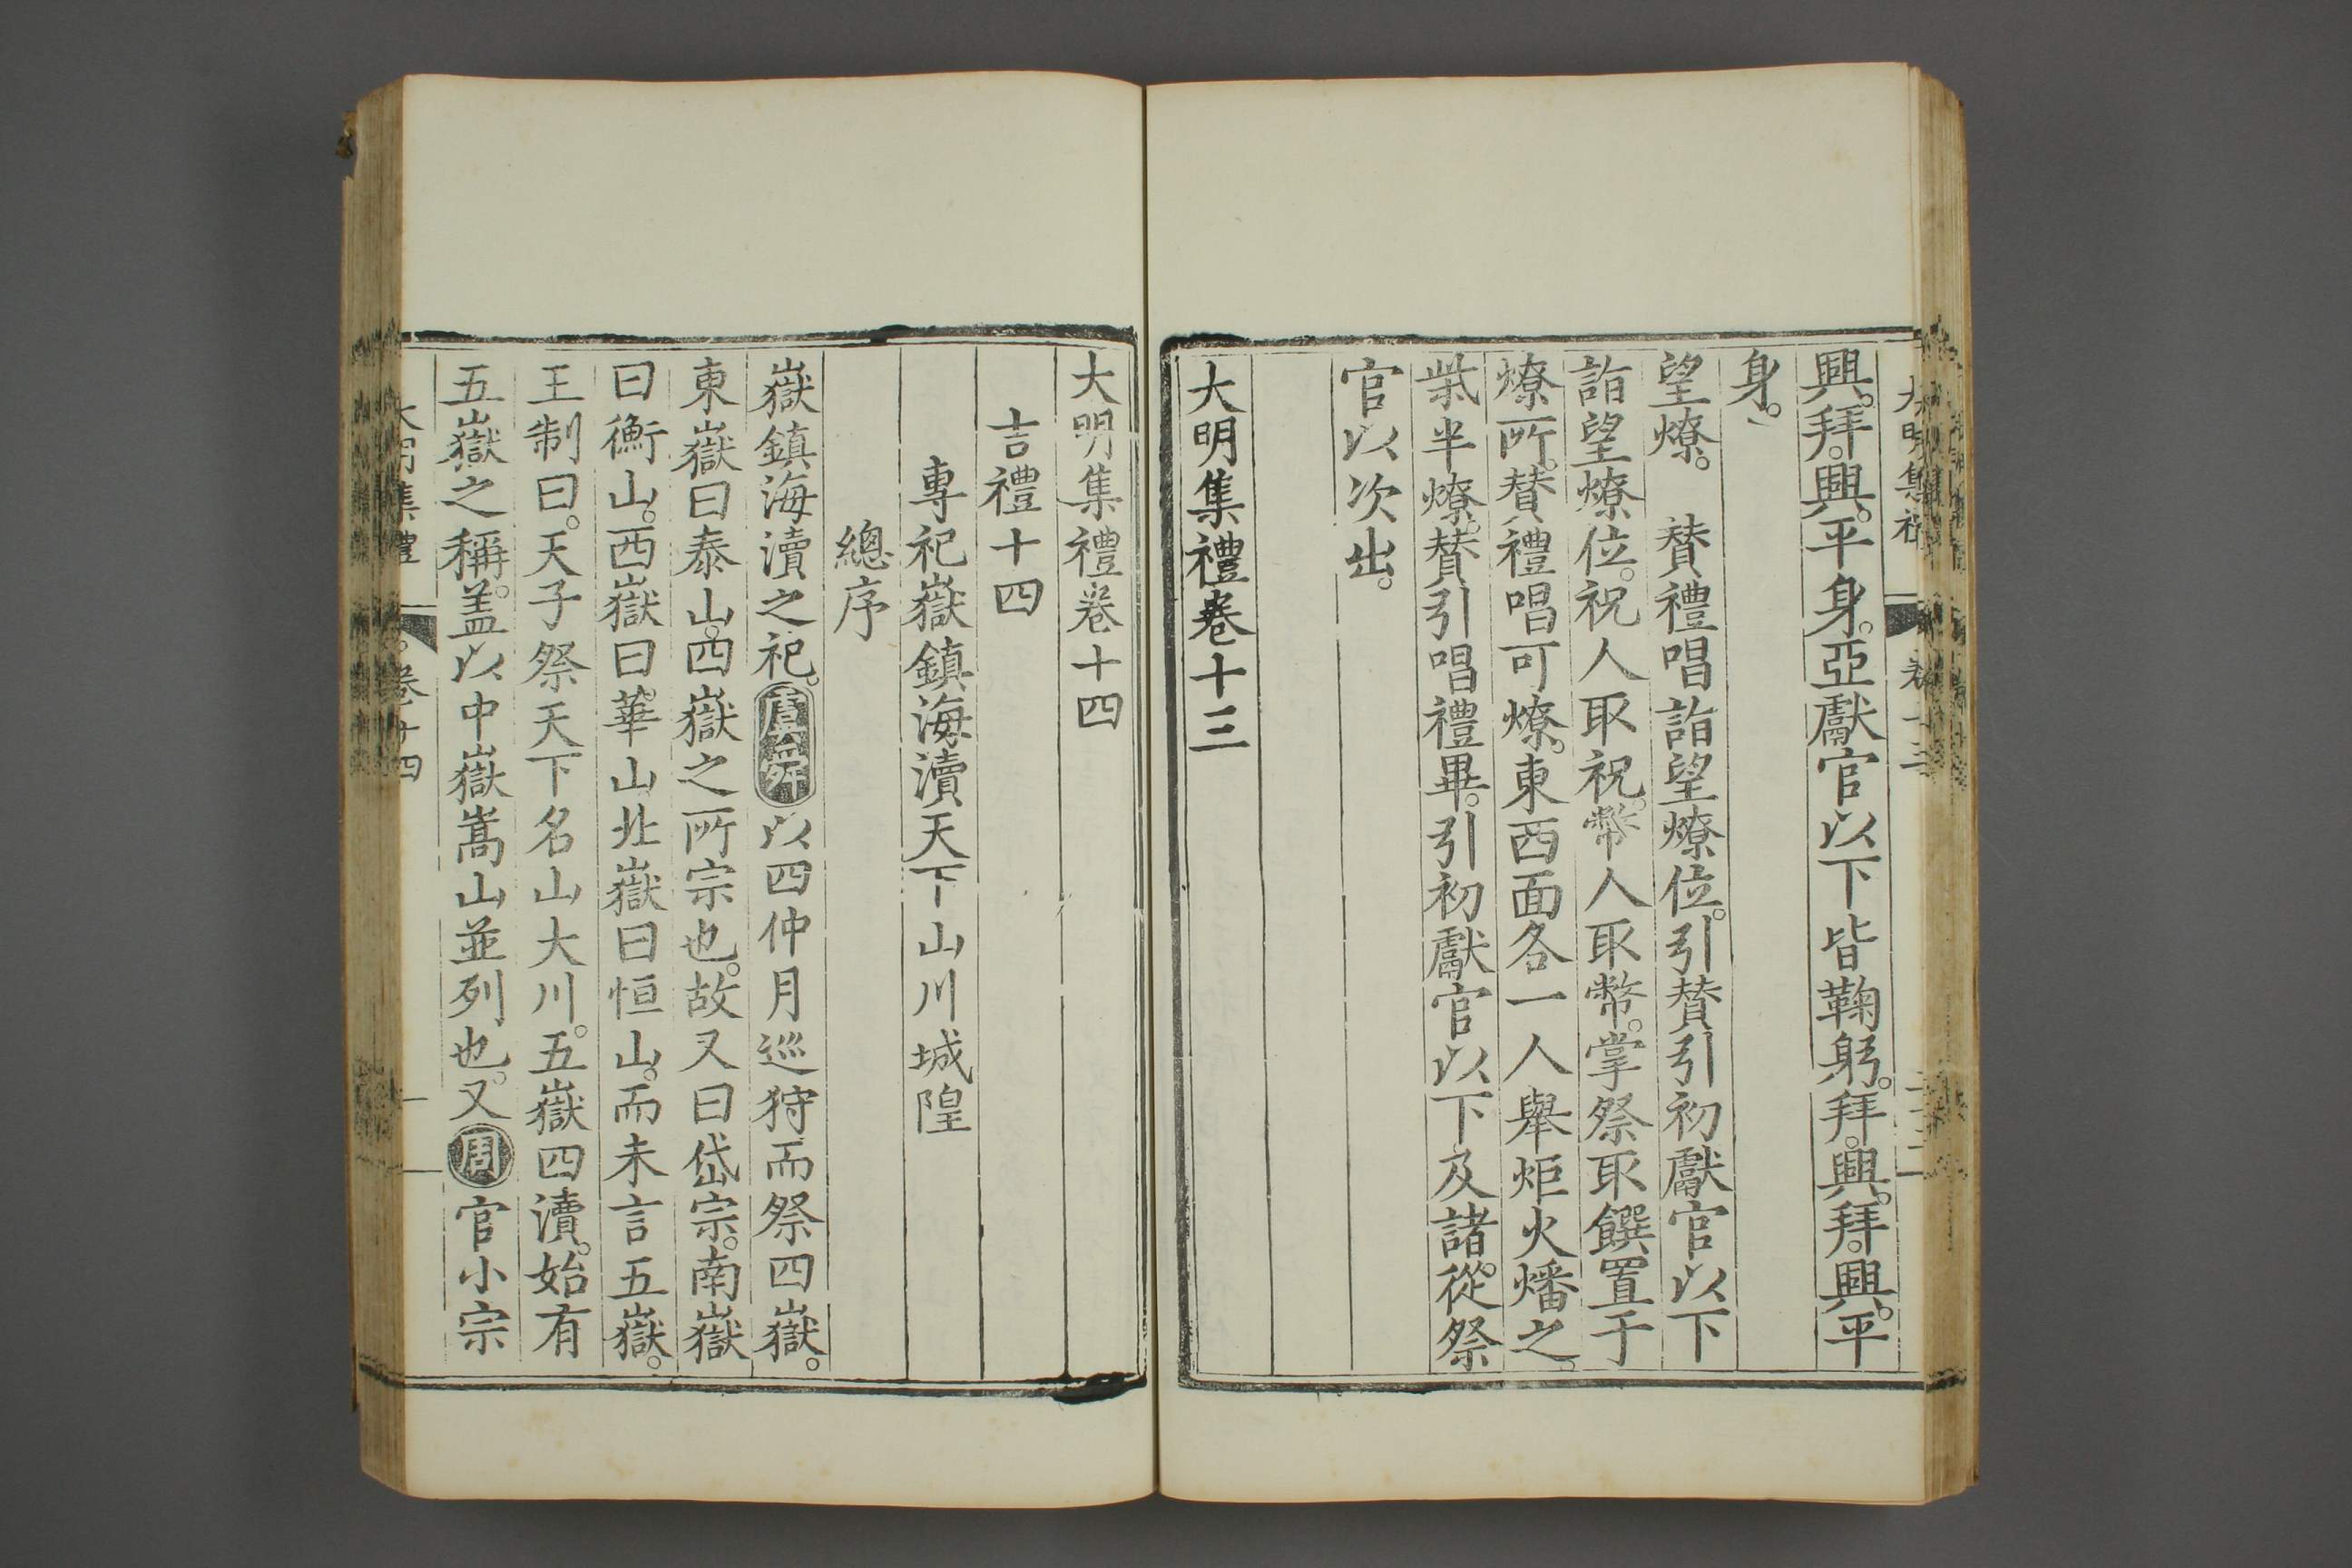 興。拜。興。平身。亞獻官以下皆鞠躬。拜。興。拜。興。平
身。
望燎。　贊禮唱詣望燎位。引贊引初獻官以下
詣望燎位。祝人取祝。幣人取幣。掌祭取饌置于
燎所。贊禮唱可燎。東西面各一人舉炬火燔之。
柴半燎。贊引唱禮畢。引初獻官以下及諸從祭
官以次出。
大明集禮卷十三
大明集禮卷十四
吉禮十四
專祀嶽鎮海瀆天下山川城隍
總序
嶽鎮海瀆之祀。虞舜以四仲月巡狩而祭四嶽。
東嶽曰泰山。四嶽之所宗也。故又曰岱宗。南嶽
曰衡山。西嶽曰華山。北嶽曰恒山。而未言五嶽。
王制曰。天子祭天下名山大川。五嶽四瀆。始有
五嶽之稱。盖以中嶽嵩山並列也。又周官小宗
大明集禮　卷十四